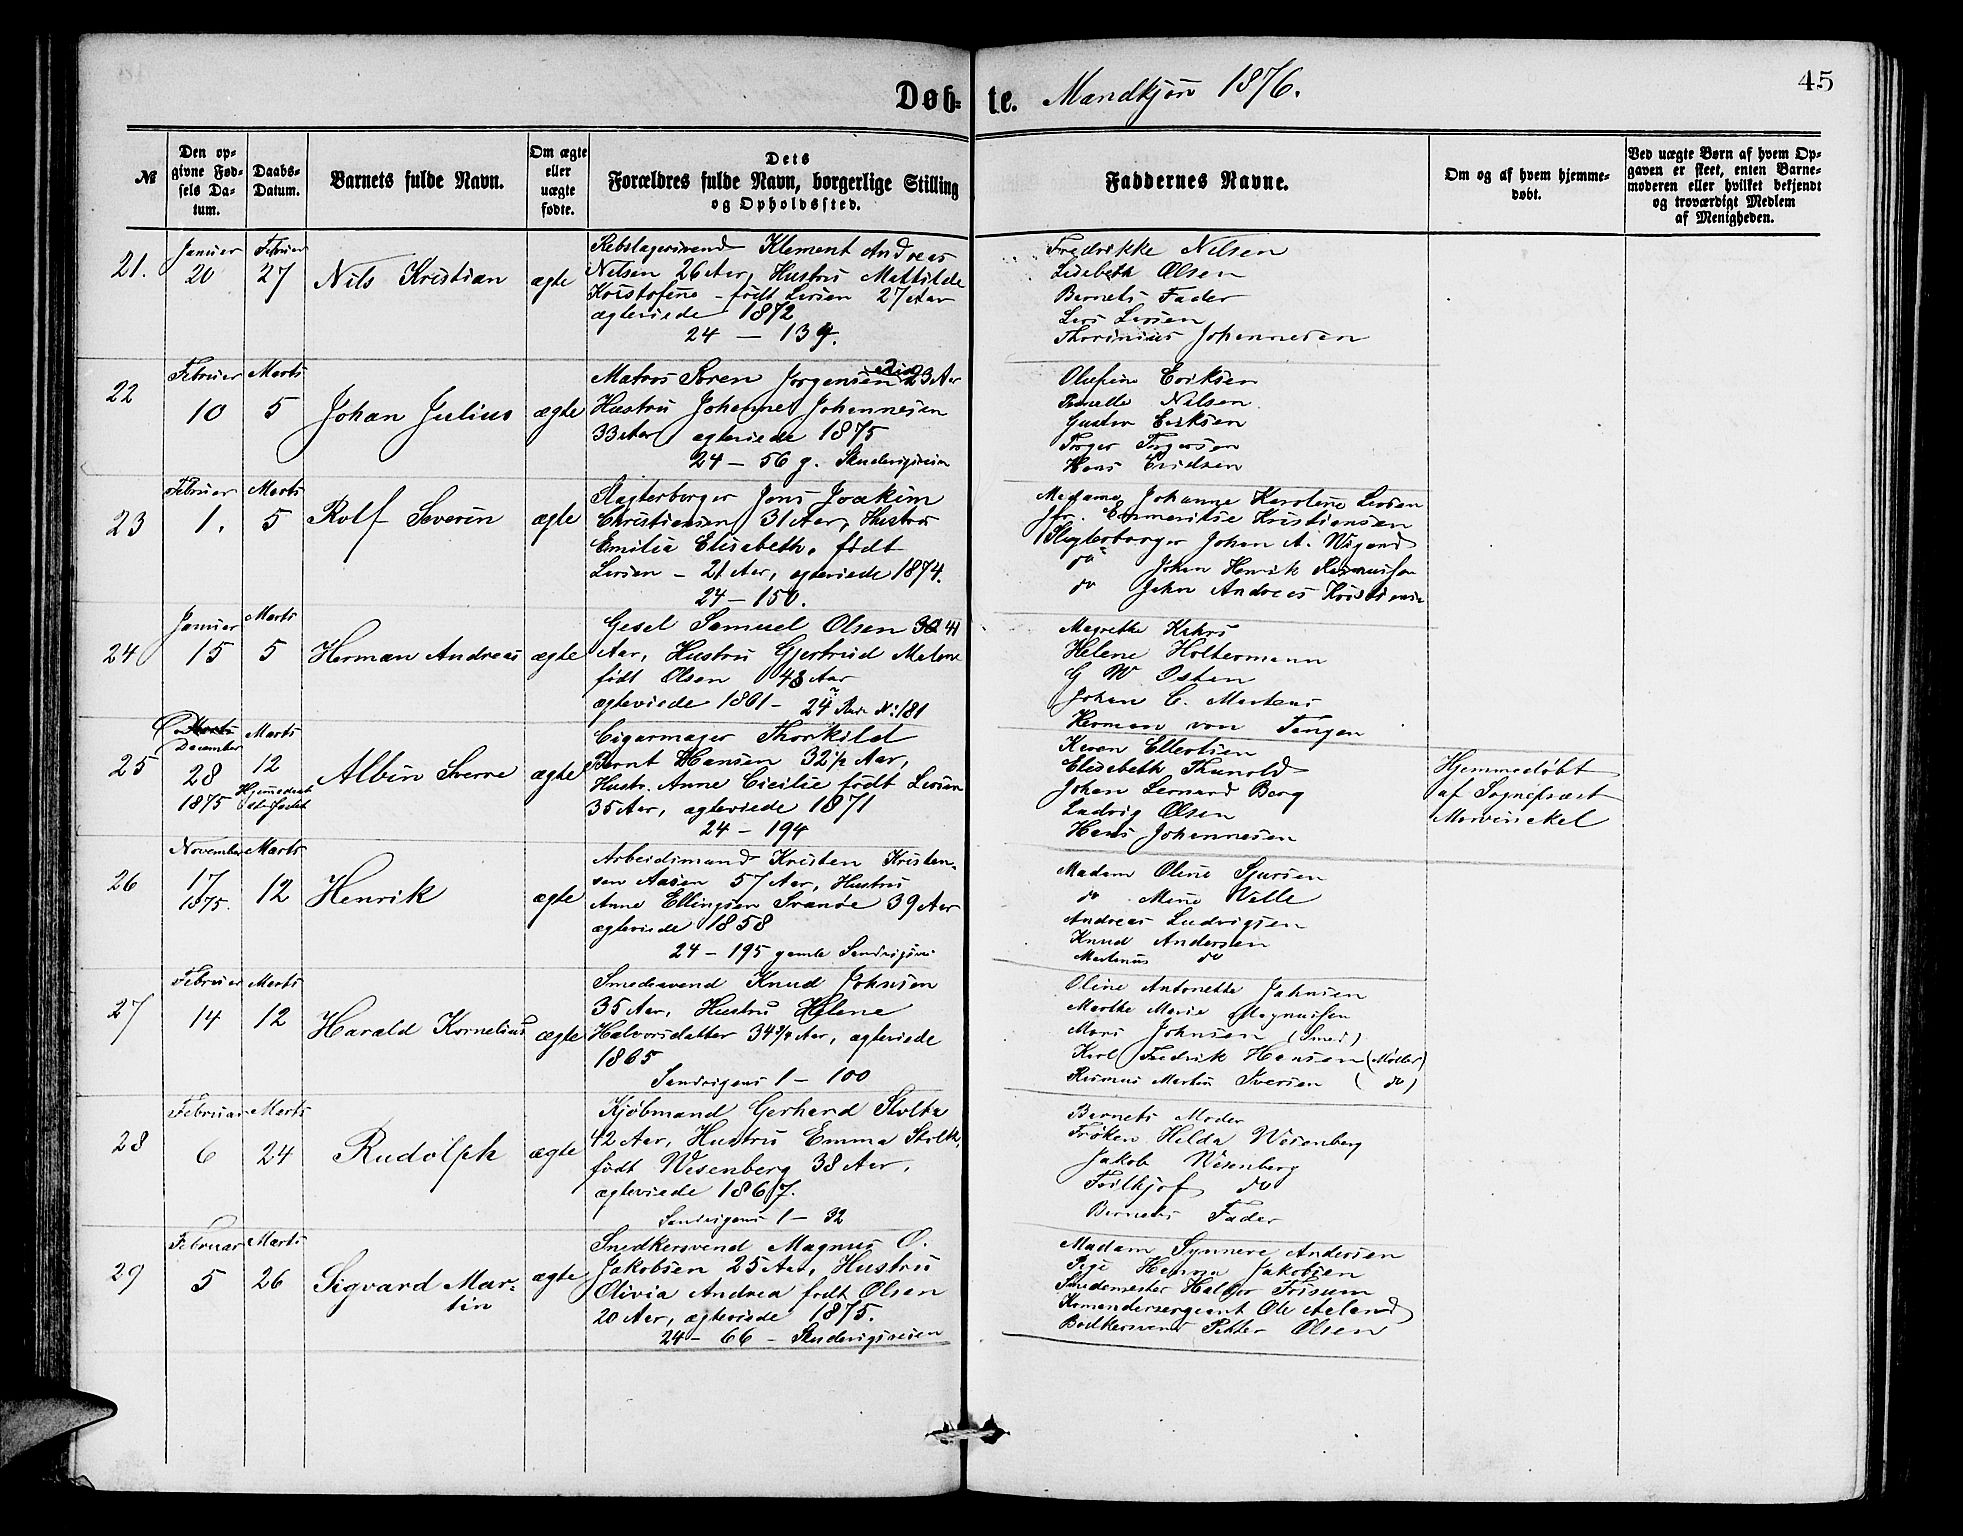 Døb-te. Mandkjøn 1876.
45
№
Den opgivne Fødsels Datum.
Daabs-Datum.
Barnets fulde Navn.
Om ægte eller uægte fødte.
Dets Forældres fulde Navn, borgerlige Stilling og Opholdssted.
Faddernes Navne.
Om og af hvem hjemmedøbt.
Ved uægte Børn af hvem Opgaven er skeet, enten Barnemoderen eller hvilket bekjendt og troværdigt Medlem af Menigheden.
21.
Januar 20
Februar 27
Nils Kristian
ægte
Rebslagersvend Klement Andreas
Nilsen 26 Aar, Hustru Mathilde
Kristofine født Larsen 27 Aar
ægteviede 1872
24 — 139.
Fredrikke Nilsen
Lisebeth Olsen
Barnets Fader
Lars Larsen
Thorinius Johannesen
22
Februar 10
Marts 5
Johan Julius
ægte
Matros Søren Jørgensen 23 Aar
Hustru Johanne Johannesen
33 Aar ægteviede 1875
24 — 56 g. Skudevigsveien
Olufine Eriksen
Nilsen
Gustav Eriksen
Torger Torgersen
Hans
23
Februar 1.
Marts 5
Rolf Severin
ægte
Slagterborger Jens Joakim
Christiansen 31 Aar, Hustru
Emilie Elisabeth, født
Larsen — 21 Aar, ægteviede 1874.
24 — 150.
Madame Johanne Karoline Larsen
Jfr. Emmeritse Kristiansen
Slagterborger Johan A. Wigand
do Johan Henrik Rasmussen
do John Andreas Kristiansen
24
Januar 15
Marts 5
Herman Andreas
ægte
Gesel Samuel Olsen 41
Aar, Hustru Gjertrud Malene
født Olsen 43 Aar
ægteviede 1861 — 24 Rode N: 181
Magrethe Kahrs
Helene Holtermann
G W Osten
Johan C. Martens
Herman von Tangen
25
December 28 1875
Marts 12
Hjemmedaab stadfæstet
Albin Sverre
ægte
Cigarmager Thorkild
Bernt Hansen 32½ Aar,
Hustr. Anne Cicilie født Larsen
35 Aar, ægteviede 1871
24 — 194
Karen Ellertsen
Elisabeth Thunold
Johan Lernard Berg
Ludvig Olsen
Hans Johannesen
Hjemmedøbt
af Sognepræst
Marvinckel
26
November 17 1875.
Marts 12
Henrik
ægte
Arbeidsmand Kristen Kristen-
sen Aasen 57 Aar, Hustru
Anne Ellingsen Svanøe 39 Aar
ægteviede 1858
24 — 195 gamle Sandvigsvei
Madam Oline Sjursen
do Mine Wille
Andreas Ludvigsen
Knud Andersen
Martinus do
27
Februar 14
Marts 12
Harald Kornelius
ægte
Smedsvend Knud Johnsen
35 Aar, Hustru Helene
Halvorsdatter 34¾ Aar, ægteviede
1865
Sandvigens 1 — 100
Oline Antonette Jahnsen
Marthe Marie Magnussen
Mons Johnsen (Smed)
Karl Fredrik Hansen (Møller)
Rasmus Martin Iversen (do)
28
Februar 6
Marts 24
Rudolph
ægte
Kjøbmand Gerhard Stoltz
42 Aar, Hustru Emma Stoltz,
født Wesenberg 38 Aar,
ægteviede 1867.
Sandvigens 1 — 32
Barnets Moder
Frøken Hilda Wesenberg
Jakob Wesenberg
Fritjof do
Barnets Fader
29
Februar 5
Marts 26
Sigvard Mar-
tin
ægte
Snedkersvend Magnus O.
Jakobsen 25 Aar, Hustru
Olivia Andrea født Olsen
20 Aar, ægteviede 1875.
24 — 66 — Skudevigsveien
Madam Synnere Andersen
Pige Hanna Jakobsen
Smedemester Halvor Frisum
Komandersergeant Ole Aaland
Bødkersvend Petter Olsen